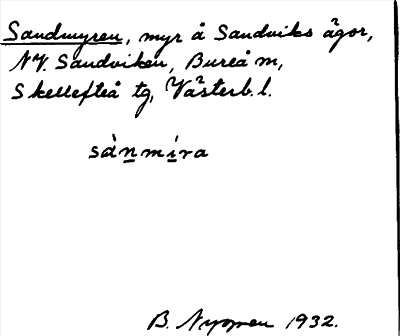 Sandmyren, myr å Sandviks ägor,
NV. Sandviken, Bureå m,
Skellefteå tg, Västerb.l.
sànmíra
B. Nygren 1932.